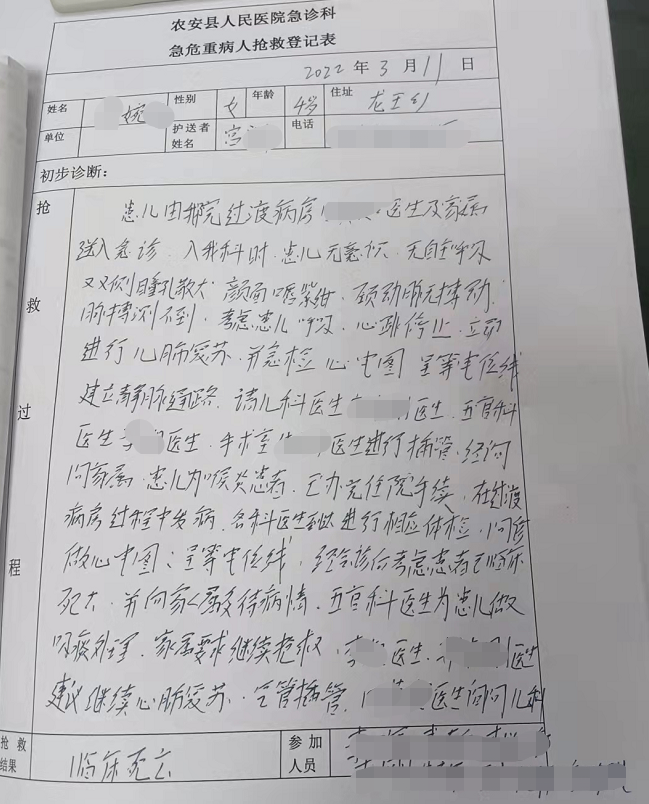 农安县人民医院急诊科
急危重病人抢救登记表
2022 年 3 月 11 日
姓名 婉 性别 女 年龄 4岁 住址 龙王乡
单位 护送者姓名 宫 电话
初步诊断：
抢救过程
患儿由我院过渡病房 医生及家属
送入急诊．入我科时．患儿无意识．无自主呼吸
双侧瞳孔散大．颜面唇紫绀．颈动脉无搏动．
脉搏测不到．考虑患儿呼吸．心跳停止．立即
进行心肺复苏．并急检心电图 呈等电位线
建立静脉通路．请儿科医生 医生．五官科
医生 医生．手术室 医生进行插管．经询
问家属．患儿为喉炎患者．已办完住院手续．在过渡
病房过程中发病．各科医生到达进行相应体检．
做心电图：呈等电位线．经会诊后考虑患者已临床
死亡．并向家属交待病情．五官科医生为患儿做
吸痰处理．家属要求继续抢救． 医生． 医生
建议继续心肺复苏．气管插管． 医生询问儿科
抢救结果 临床死亡 参加人员